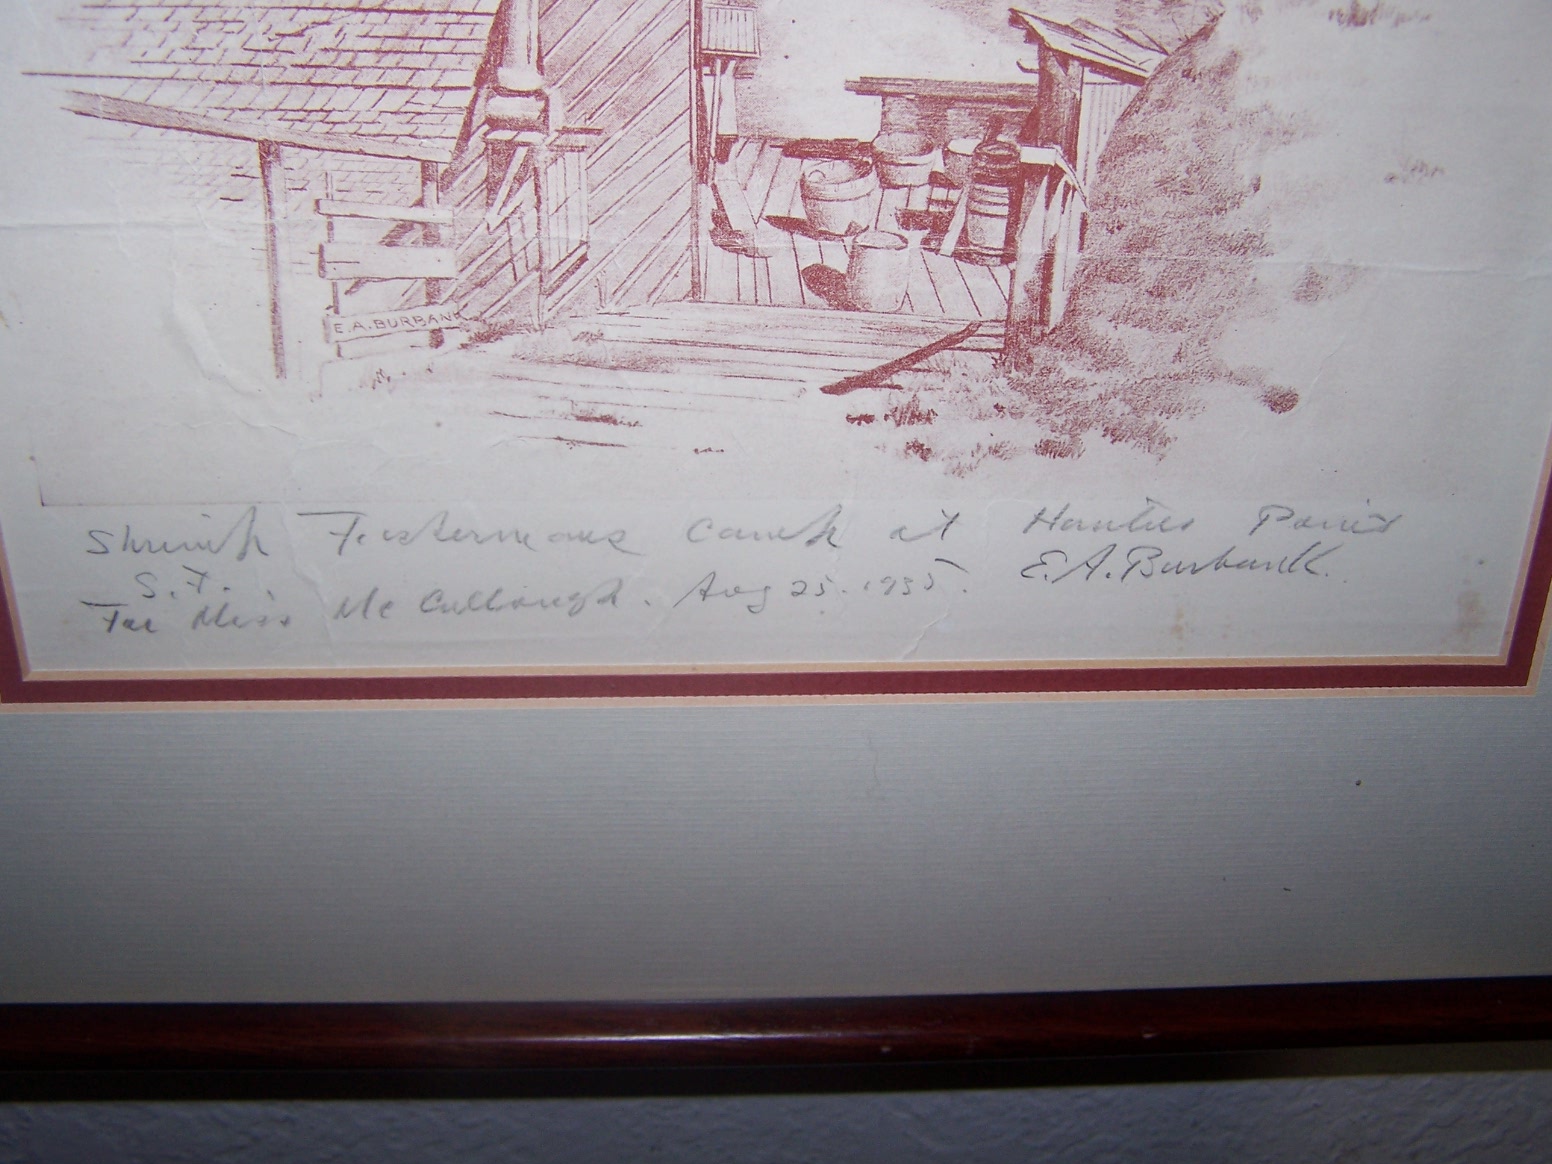 E.A. BURBANK
Shrimp Fishermans Camp at Hunters Point
S.F. E.A. Burbank.
For Miss McCullough. Aug 25. 1935.